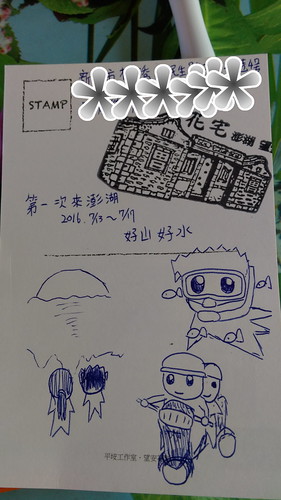 STAMP
花宅 澎湖
第一次來澎湖
2016. 7/13～7/17
好山好水
平垵工作室・望安